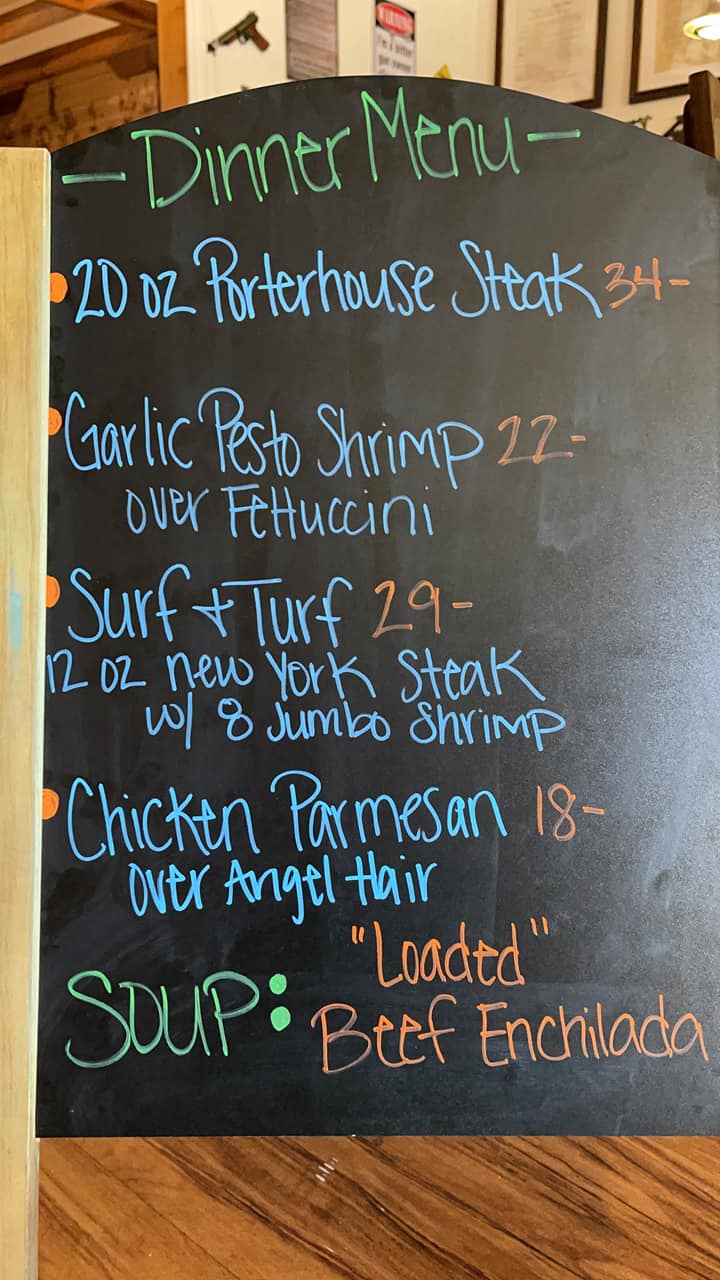 WARNING
I'm a bitter
gun owner
- Dinner Menu -
20 oz Porterhouse Steak 34-
Garlic Pesto Shrimp 22-
over Fettuccini
Surf + Turf 29-
12 oz new York Steak
w/ 8 Jumbo Shrimp
Chicken Parmesan 18-
over Angel Hair
"Loaded"
SOUP: Beef Enchilada